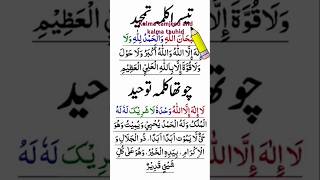 تیسرا کلمہ تمجید
kalma tamjeed and
kalma tauhid
سُبْحَانَ اللهِ وَالْحَمْدُ لِلّٰهِ وَلَا
اِلٰهَ اِلَّا اللهُ وَاللهُ اَكْبَرُ وَلَا حَوْلَ
وَلَا قُوَّةَ اِلَّا بِاللهِ الْعَلِيِّ الْعَظِيْمِ
چوتھا کلمہ توحید
لَا اِلٰهَ اِلَّا اللهُ وَحْدَهٗ لَا شَرِيْكَ لَهٗ لَهُ
الْمُلْكُ وَلَهُ الْحَمْدُ يُحْيِيْ وَيُمِيْتُ وَهُوَ
حَيٌّ لَّا يَمُوْتُ اَبَدًا اَبَدًا ذُو الْجَلَالِ وَ
الْاِكْرَامِ بِيَدِهِ الْخَيْرُ وَهُوَ عَلٰى كُلِّ
شَيْءٍ قَدِيْرٌ